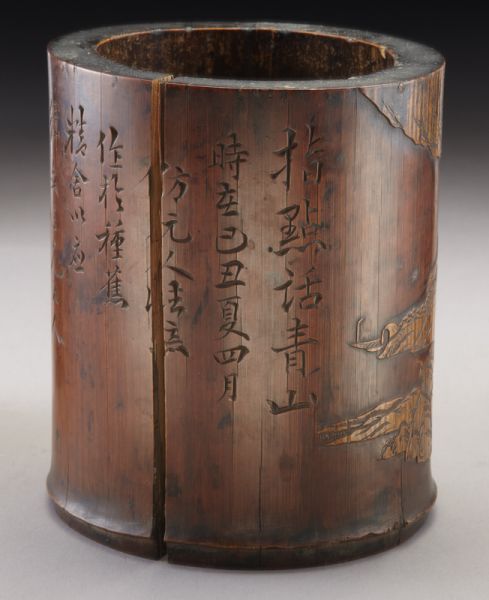 指點話青山
時在己丑夏四月
仿元人筆意
作於種蕉
精舍以應